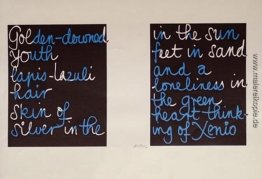 Golden-downed
youth
lapis-lazuli
hair
skin of
silver in the
in the sun
feet in sand
and a
loneliness in
the green
heart think-
ing of Xenio
www.malereikopie.de